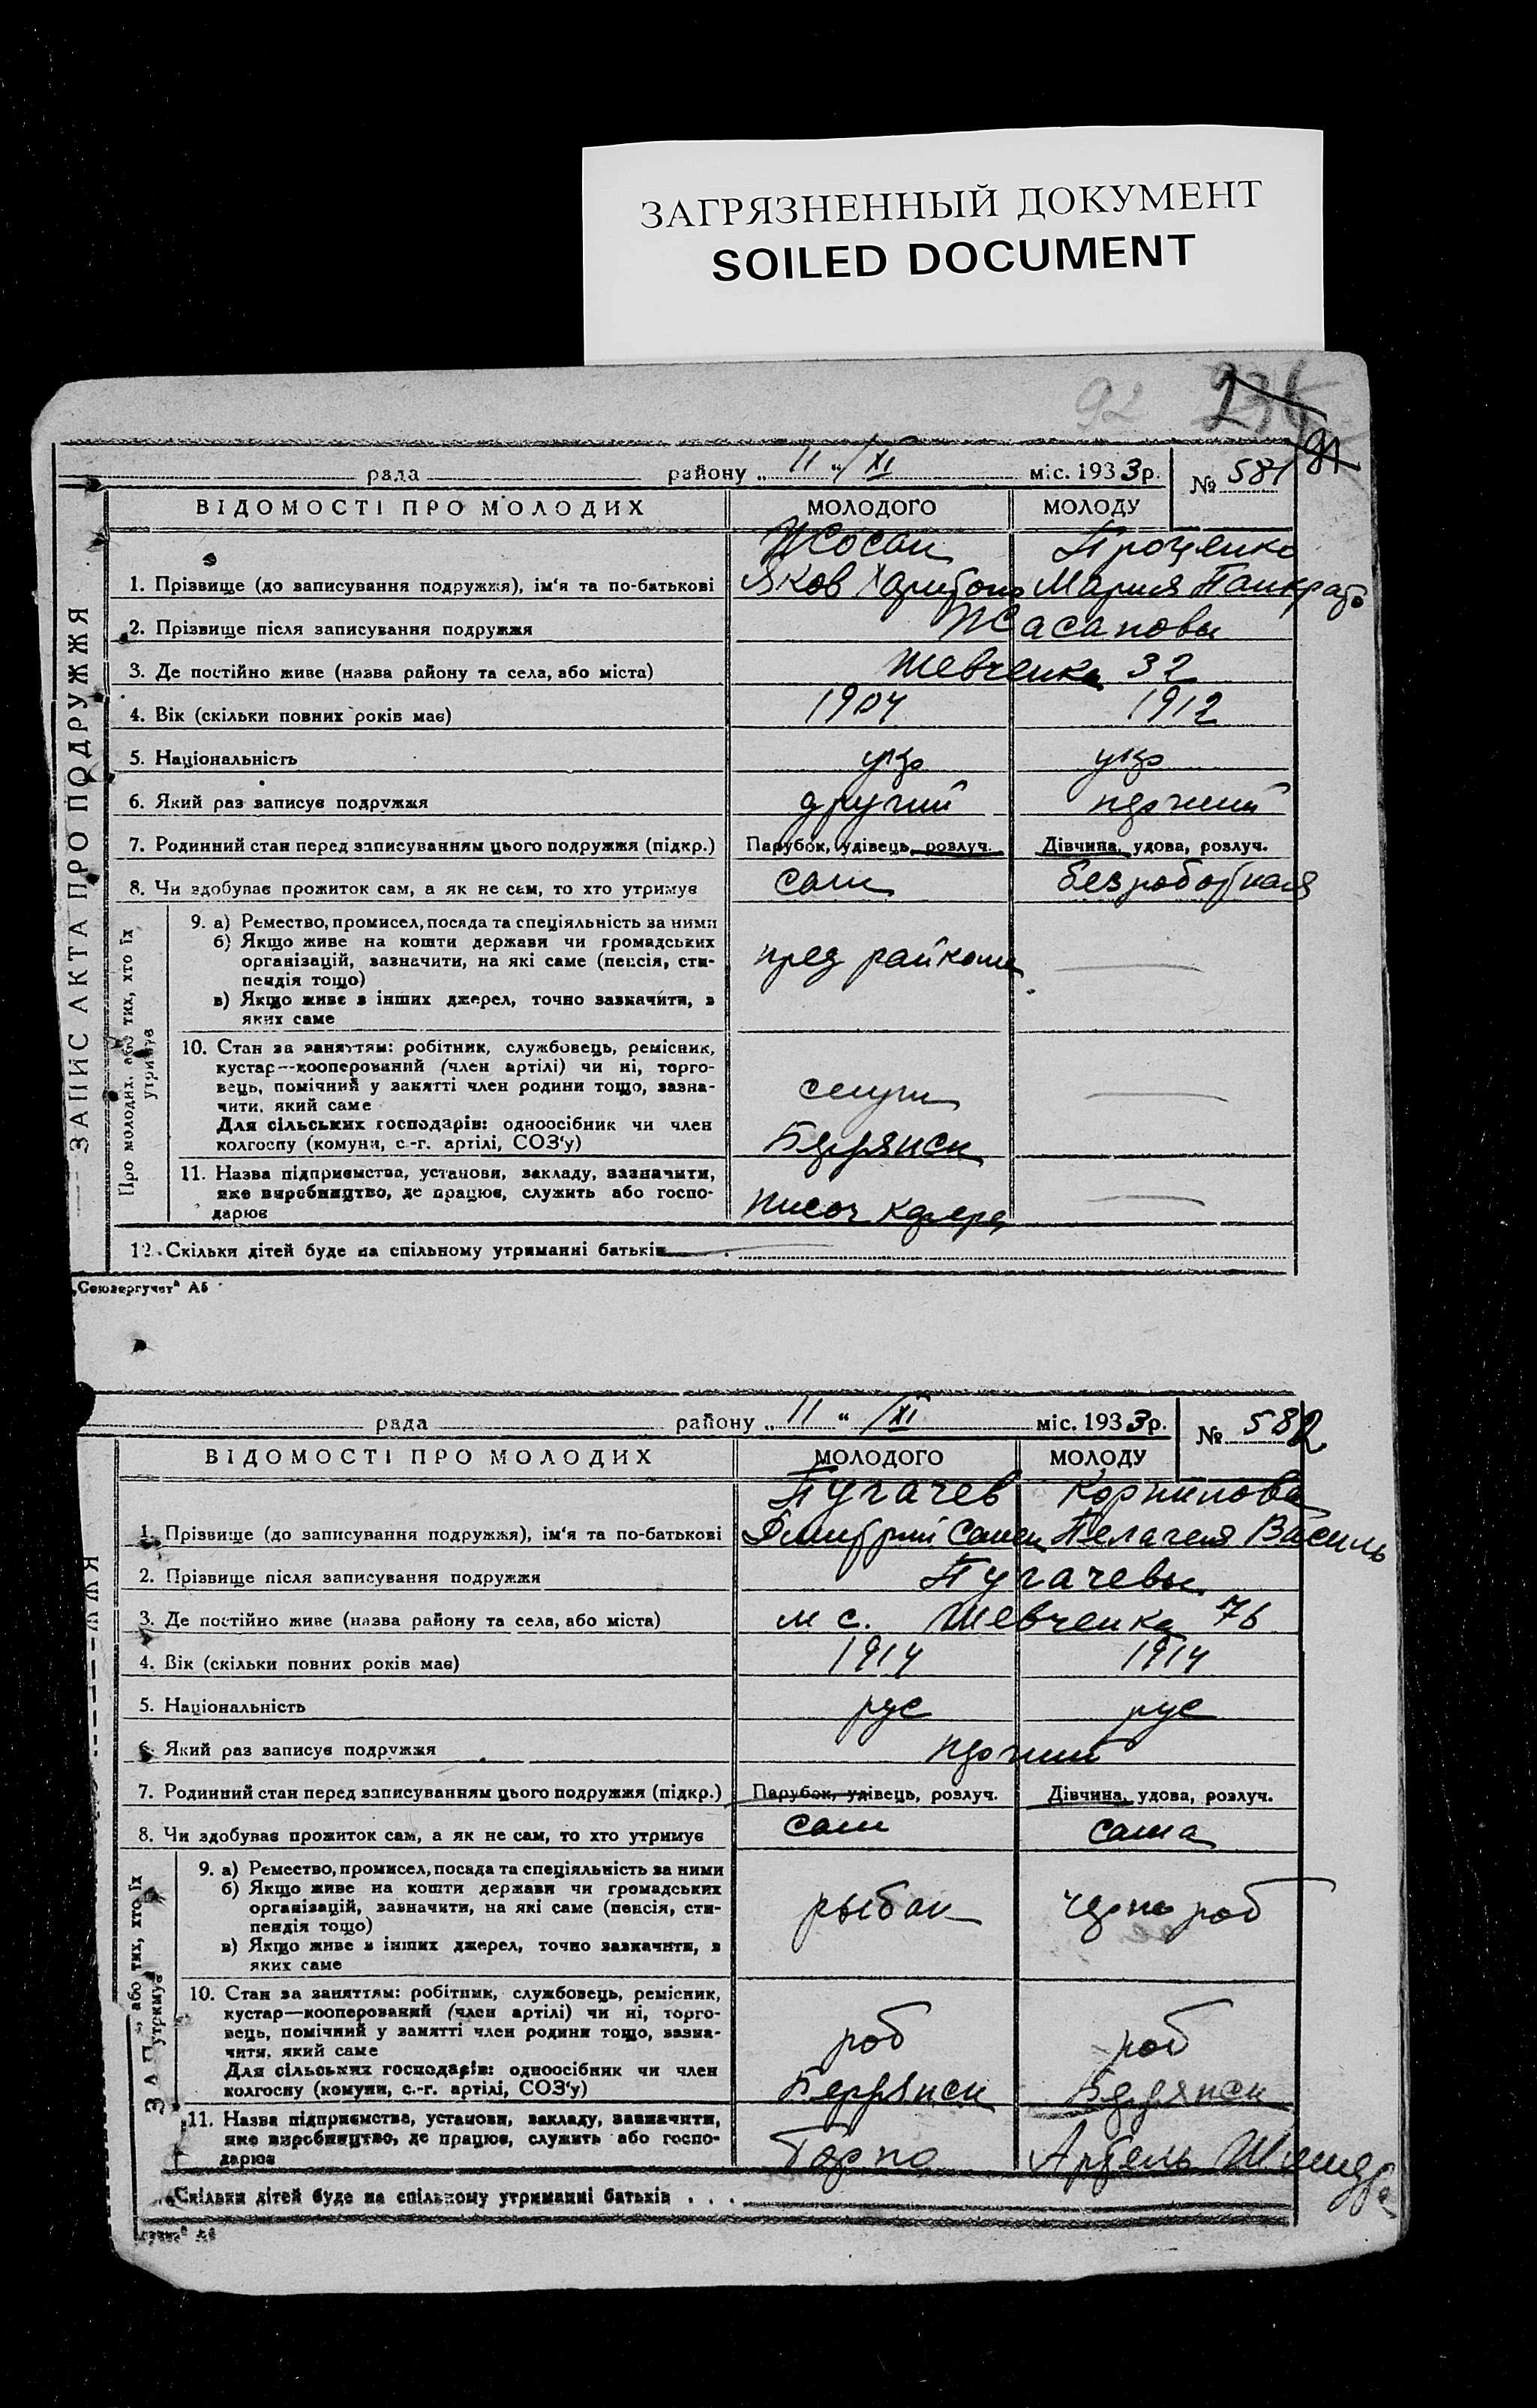 ЗАГРЯЗНЕННЫЙ ДОКУМЕНТ
SOILED DOCUMENT
92
91
рада району „ 11 “ /XI міс. 1933 р. № 581
ЗАПИС АКТА ПРО ПОДРУЖЖЯ
ВІДОМОСТІ ПРО МОЛОДИХ МОЛОДОГО МОЛОДУ
Проценко
1. Прізвище (до записування подружжя), ім'я та по-батькові Яков Харитон Мария Панкрат
2. Прізвище після записування подружжя
3. Де постійно живе (назва району та села, або міста) Шевченка 32
4. Вік (скільки повних років має) 1904 1912
5. Національність укр укр
6. Який раз записує подружжя другий перший
7. Родинний стан перед записуванням цього подружжя (підкр.) Парубок, удівець, розлуч. Дівчина, удова, розлуч.
8. Чи здобуває прожиток сам, а як не сам, то хто утримує сам безработная
Про молодих, або тих, хто їх утримує
9. а) Ремество, промисел, посада та спеціяльність за ними
б) Якщо живе на кошти держави чи громадських
організацій, зазначити, на які саме (пенсія, сти-
пендія тощо)
пред райкома
в) Якщо живе з інших джерел, точно зазначити, з
яких саме
10. Стан за заняттям: робітник, службовець, ремісник,
кустар—кооперований (член артілі) чи ні, торго-
вець, помічний у занятті член родини тощо, зазна-
чити, який саме
Для сільських господарів: одноосібник чи член
колгоспу (комуни, с.-г. артілі, СОЗ'у)
Бердянск
11. Назва підприємства, установи, закладу, зазначити,
яке виробництво, де працює, служить або госпо-
дарює
12. Скільки дітей буде на спільному утриманні батьків
„Союзоргучет“ А5
рада району „ 11 “ /XI міс. 1933 р. № 582
ВІДОМОСТІ ПРО МОЛОДИХ МОЛОДОГО МОЛОДУ
Пугачев Корнилова
1. Прізвище (до записування подружжя), ім'я та по-батькові Дмитрий Пелагея Василь
2. Прізвище після записування подружжя Пугачевы
3. Де постійно живе (назва району та села, або міста) м с. Шевченка 76
4. Вік (скільки повних років має) 1914 1914
5. Національність рус рус
6. Який раз записує подружжя перший
7. Родинний стан перед записуванням цього подружжя (підкр.) Парубок, удівець, розлуч. Дівчина, удова, розлуч.
8. Чи здобуває прожиток сам, а як не сам, то хто утримує сам сама
або тих, хто їх утримує
9. а) Ремество, промисел, посада та спеціяльність за ними
б) Якщо живе на кошти держави чи громадських
організацій, зазначити, на які саме (пенсія, сти-
пендія тощо)
рыбак черно роб
в) Якщо живе з інших джерел, точно зазначити, з
яких саме
10. Стан за заняттям: робітник, службовець, ремісник,
кустар—кооперований (член артілі) чи ні, торго-
вець, помічний у занятті член родини тощо, зазна-
чити, який саме
роб роб
Для сільських господарів: одноосібник чи член
колгоспу (комуни, с.-г. артілі, СОЗ'у)
Бердянск Бердянск
11. Назва підприємства, установи, закладу, зазначити,
яке виробництво, де працює, служить або госпо-
дарює
Артель
Скільки дітей буде на спільному утриманні батьків . . .